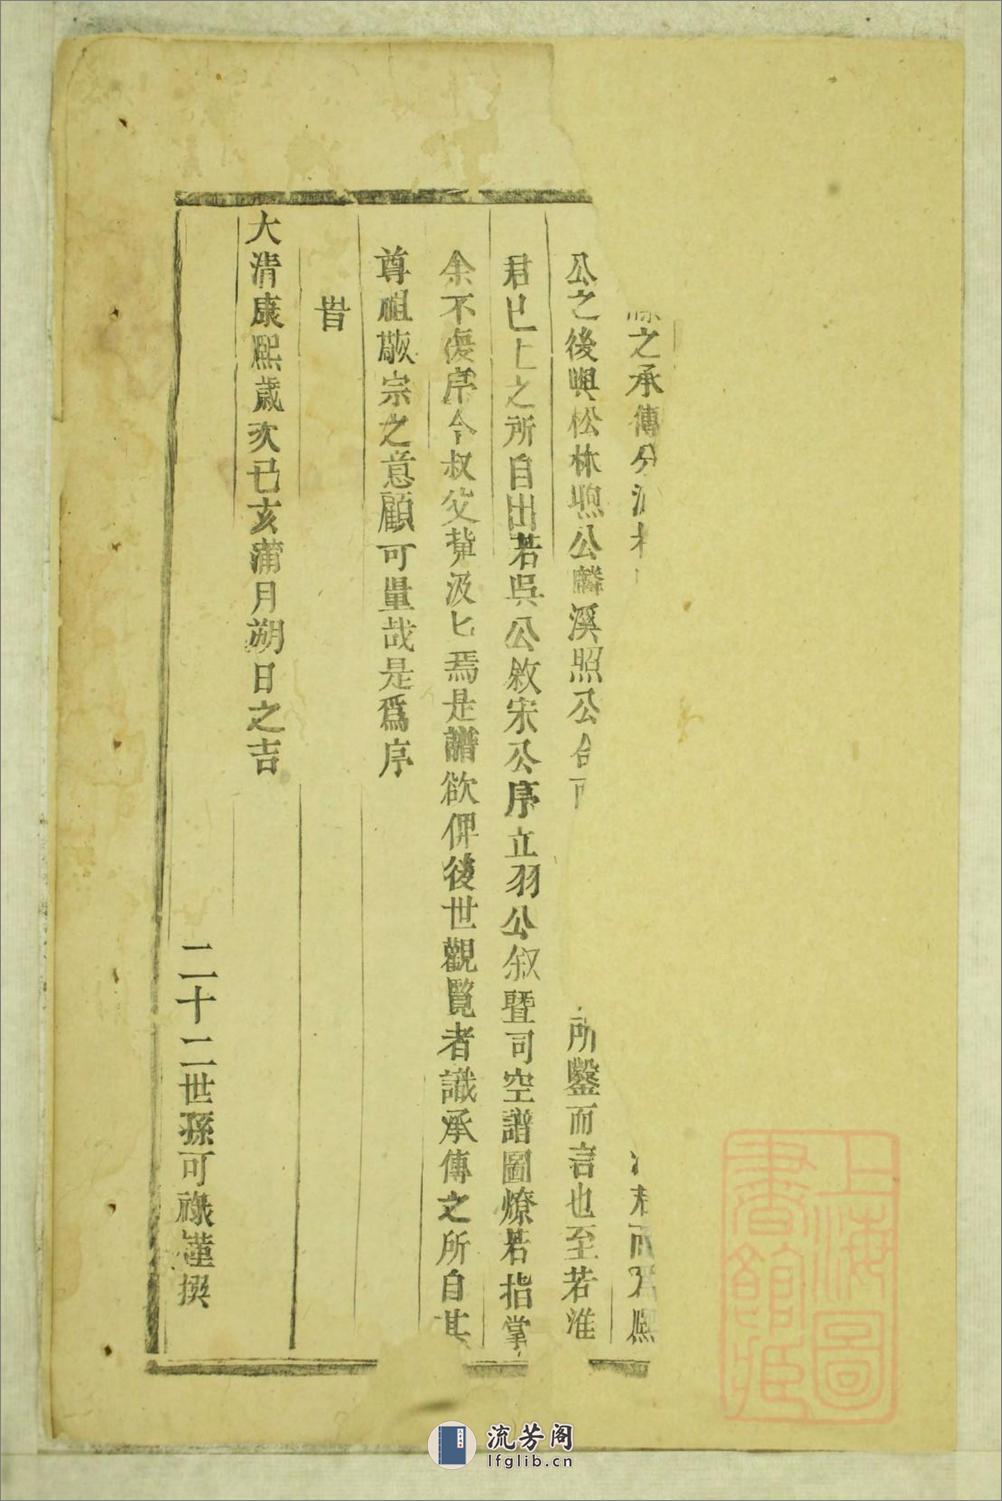 之承傳分派 而 熙
公之後與松林煦公麟溪照公 所鑒而言也至若淮
君已上之所自出若吳公敘宋公序立羽公叙暨司空譜圖燎若指掌
余不復序今叔父 汲匕焉是譜欲俾後世觀覽者識承傳之所自其
尊祖敬宗之意顧可量哉是爲序
旹
大清康熙歲次已亥蒲月朔日之吉
二十二世孫可祿謹撰
上海圖書館藏
流芳阁
lfglib.cn